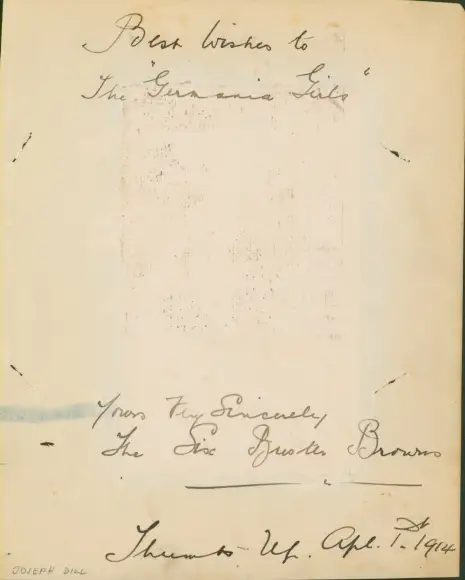 Best Wishes to
The "Germania Girls"
Yours Vey Sincerely
The Six Buster Browns
Thumbs Up. Apl. 1st. 1914
JOSEPH DILL